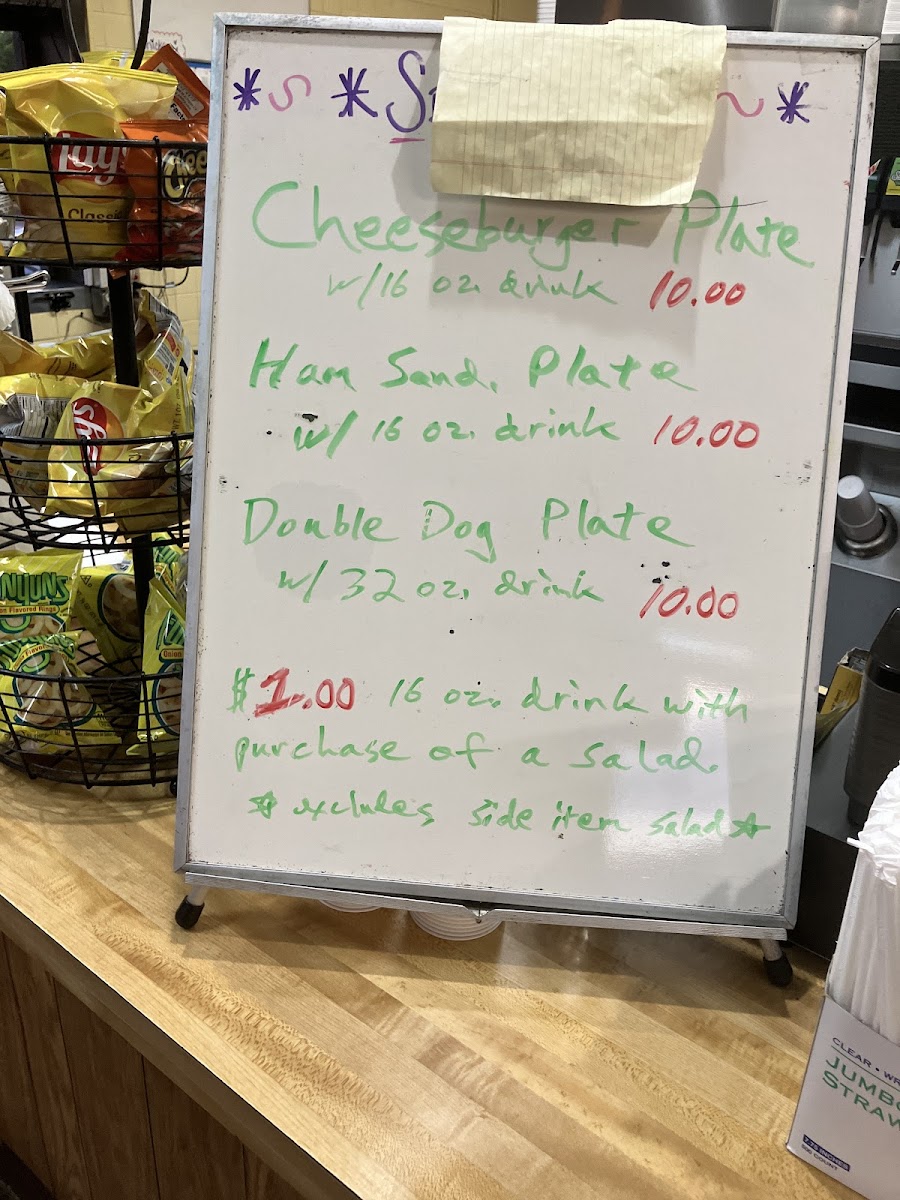 Lay's
Classic
Chee
Cheeseburger Plate
w/16 oz. drink 10.00
Ham Sand. Plate
w/ 16 oz. drink 10.00
Double Dog Plate
w/ 32 oz. drink 10.00
$1.00 16 oz. drink with
purchase of a salad.
☆ excludes side item salad ☆
Lay's
NYUNS
on Flavored Rings
Onion
CLEAR • WR
JUMBO
STRAW
7.75 INCHES
COUNT